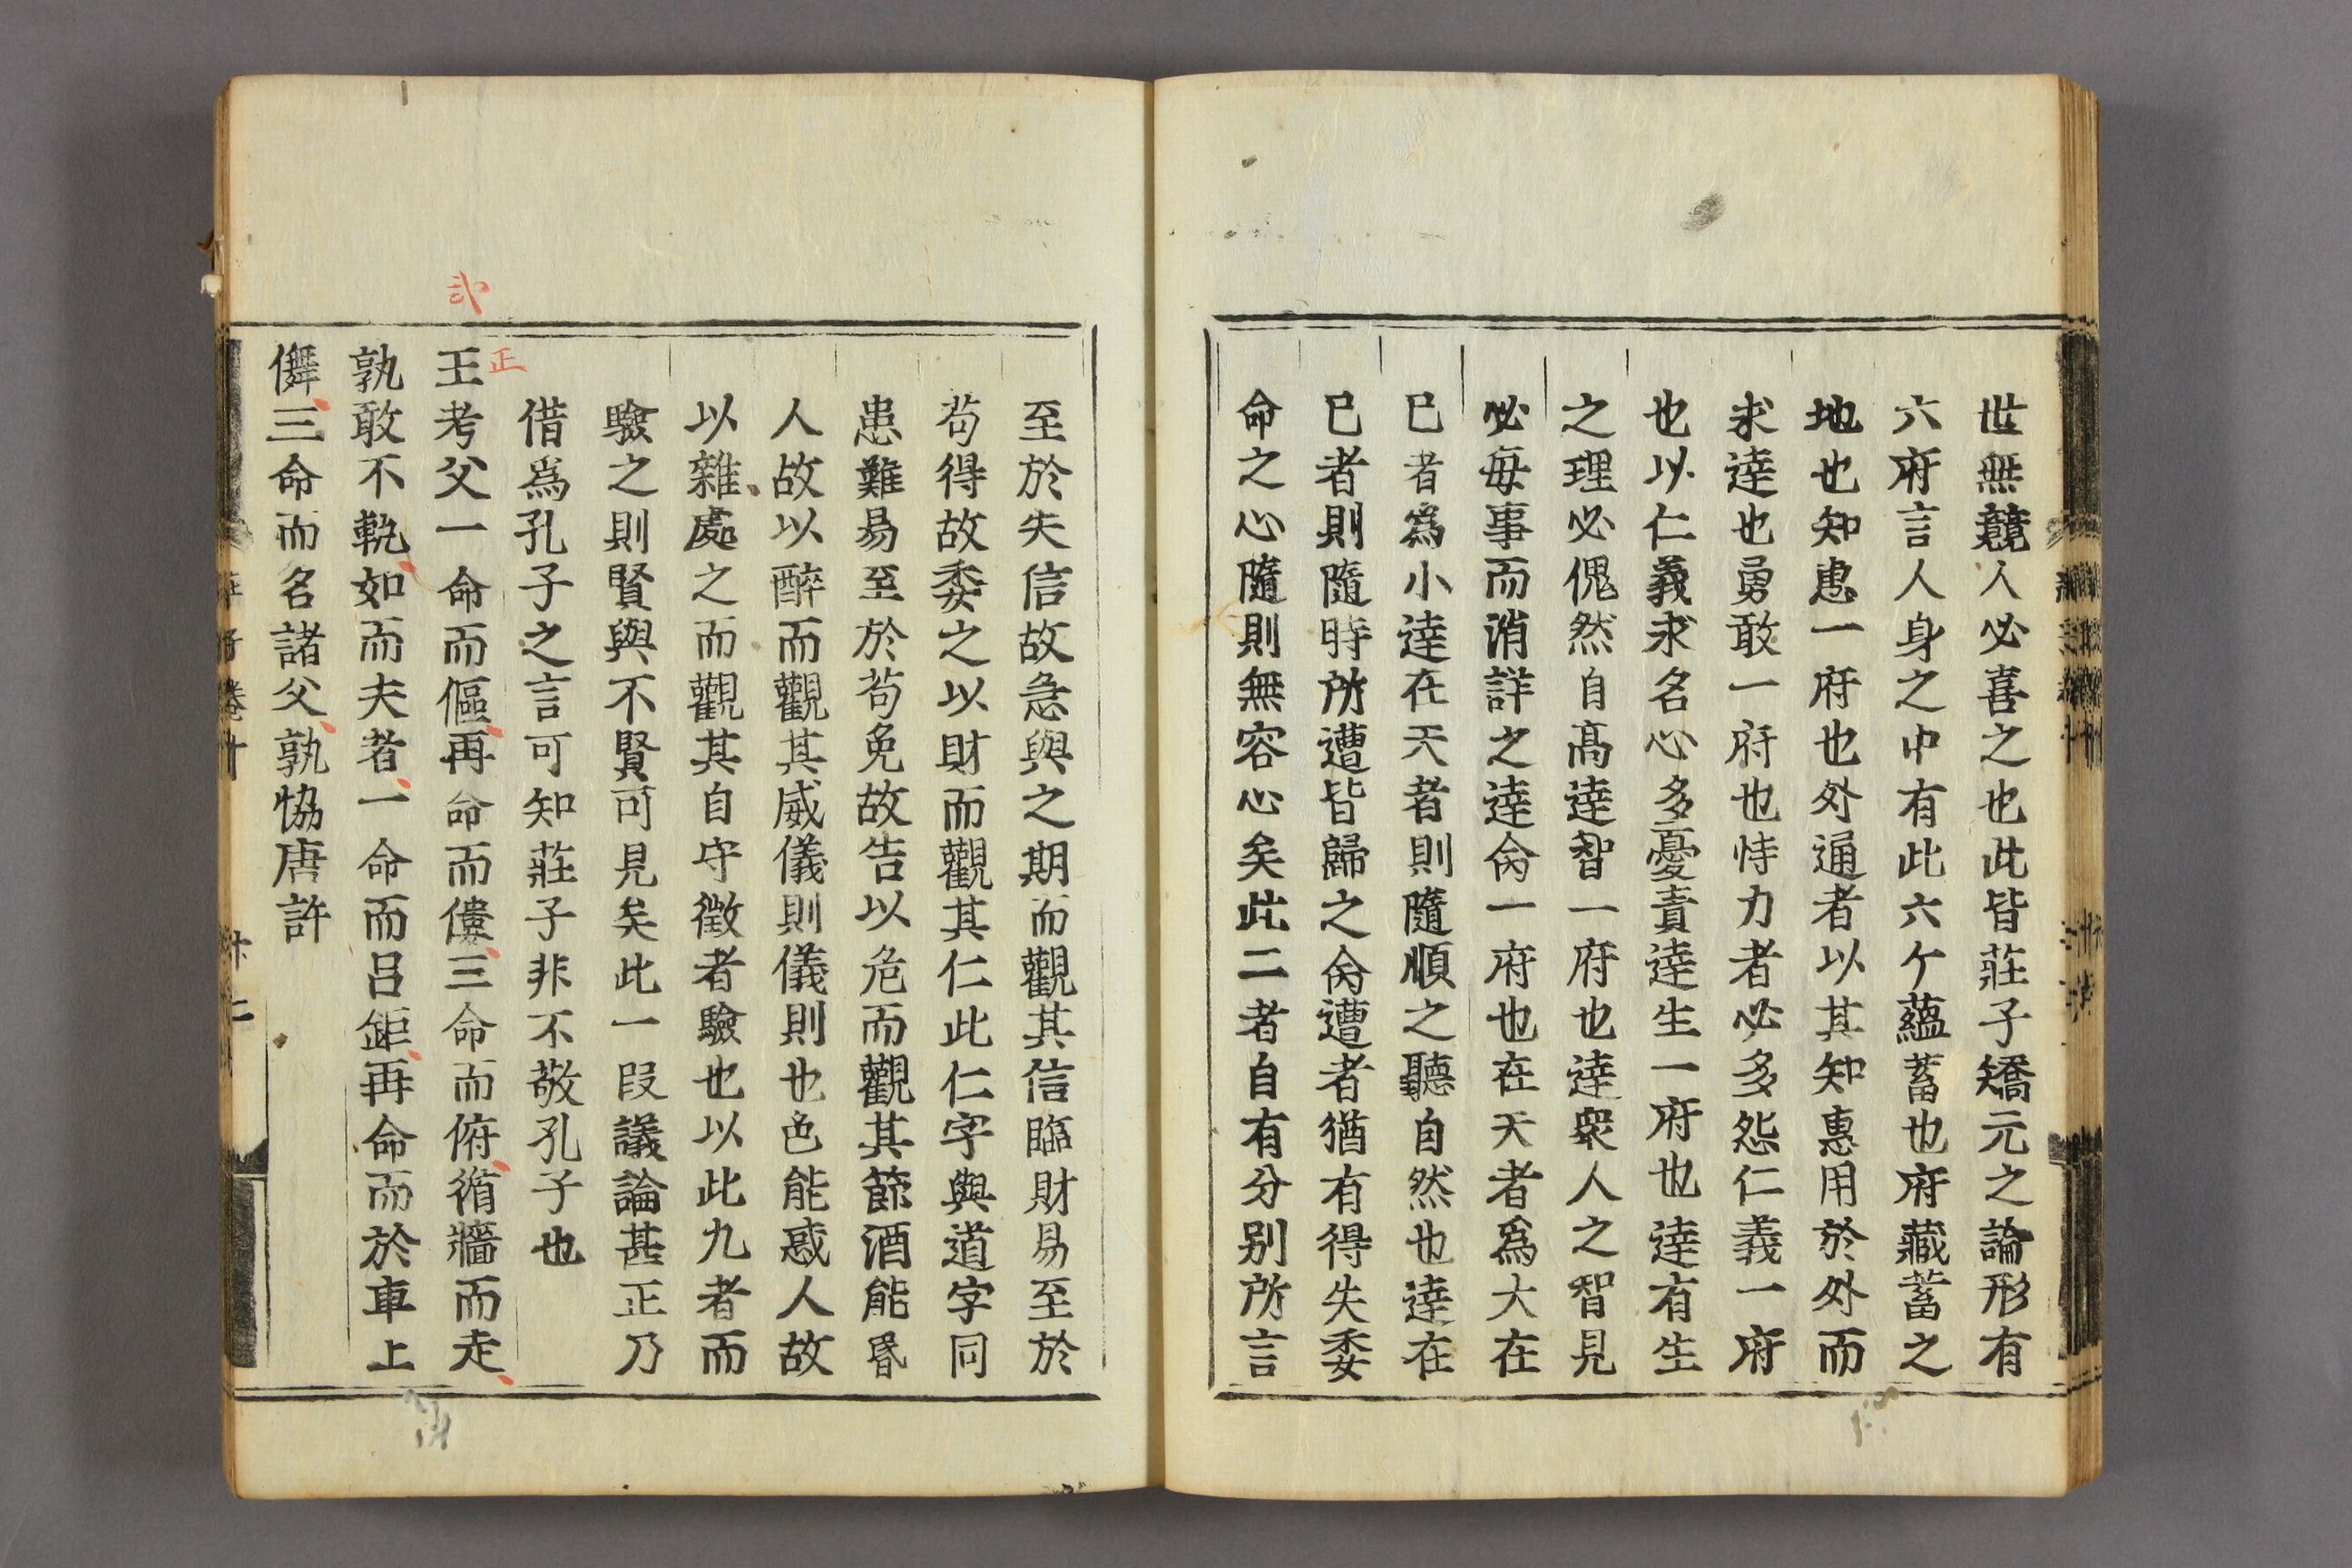 世無競人必喜之也此皆莊子矯元之論形有
六府言人身之中有此六ケ蘊蓄也府藏蓄之
地也知惠一府也外通者以其知惠用於外而
求逹也勇敢一府也恃力者必多怨仁義一府
也以仁義求名心多憂責逹生一府也逹有生
之理必傀然自髙逹智一府也逹衆人之智見
必每事而消詳之逹命一府也在天者爲大在
已者爲小逹在天者則隨順之聽自然也逹在
已者則隨時所遭皆歸之命遭者猶有得失委
命之心隨則無容心矣此二者自有分别所言
至於失信故急與之期而觀其信臨財易至於
苟得故委之以財而觀其仁此仁字與道字同
患難易至於苟免故告以危而觀其節酒能昬
人故以醉而觀其威儀則儀則也色能惑人故
以雜處之而觀其自守徵者驗也以此九者而
驗之則賢與不賢可見矣此一段議論甚正乃
借爲孔子之言可知莊子非不敬孔子也
正
王考父一命而傴再命而僂三命而俯循牆而走
孰敢不軌如而夫者一命而吕鉅再命而於車上
儛三命而名諸父孰恊唐許
莊子卷十